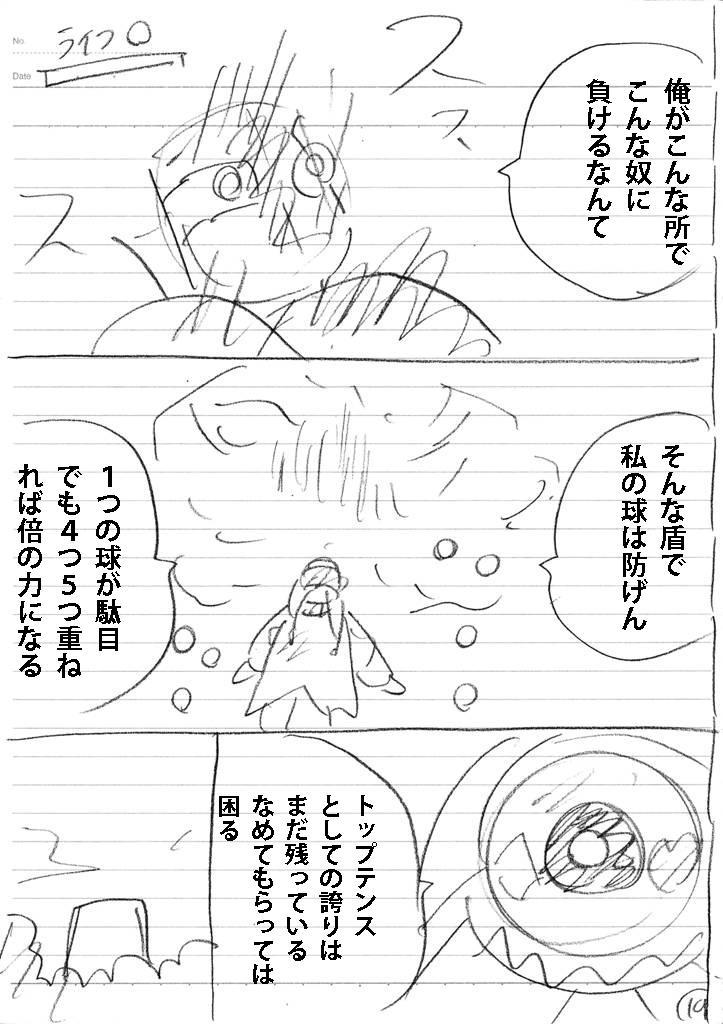 No.
Date
ライフ0
俺がこんな所で
こんな奴に
負けるなんて
ス
ス
そんな盾で
私の球は防げん
１つの球が駄目
でも４つ５つ重ね
れば倍の力になる
トップテンス
としての誇りは
まだ残っている
なめてもらっては
困る